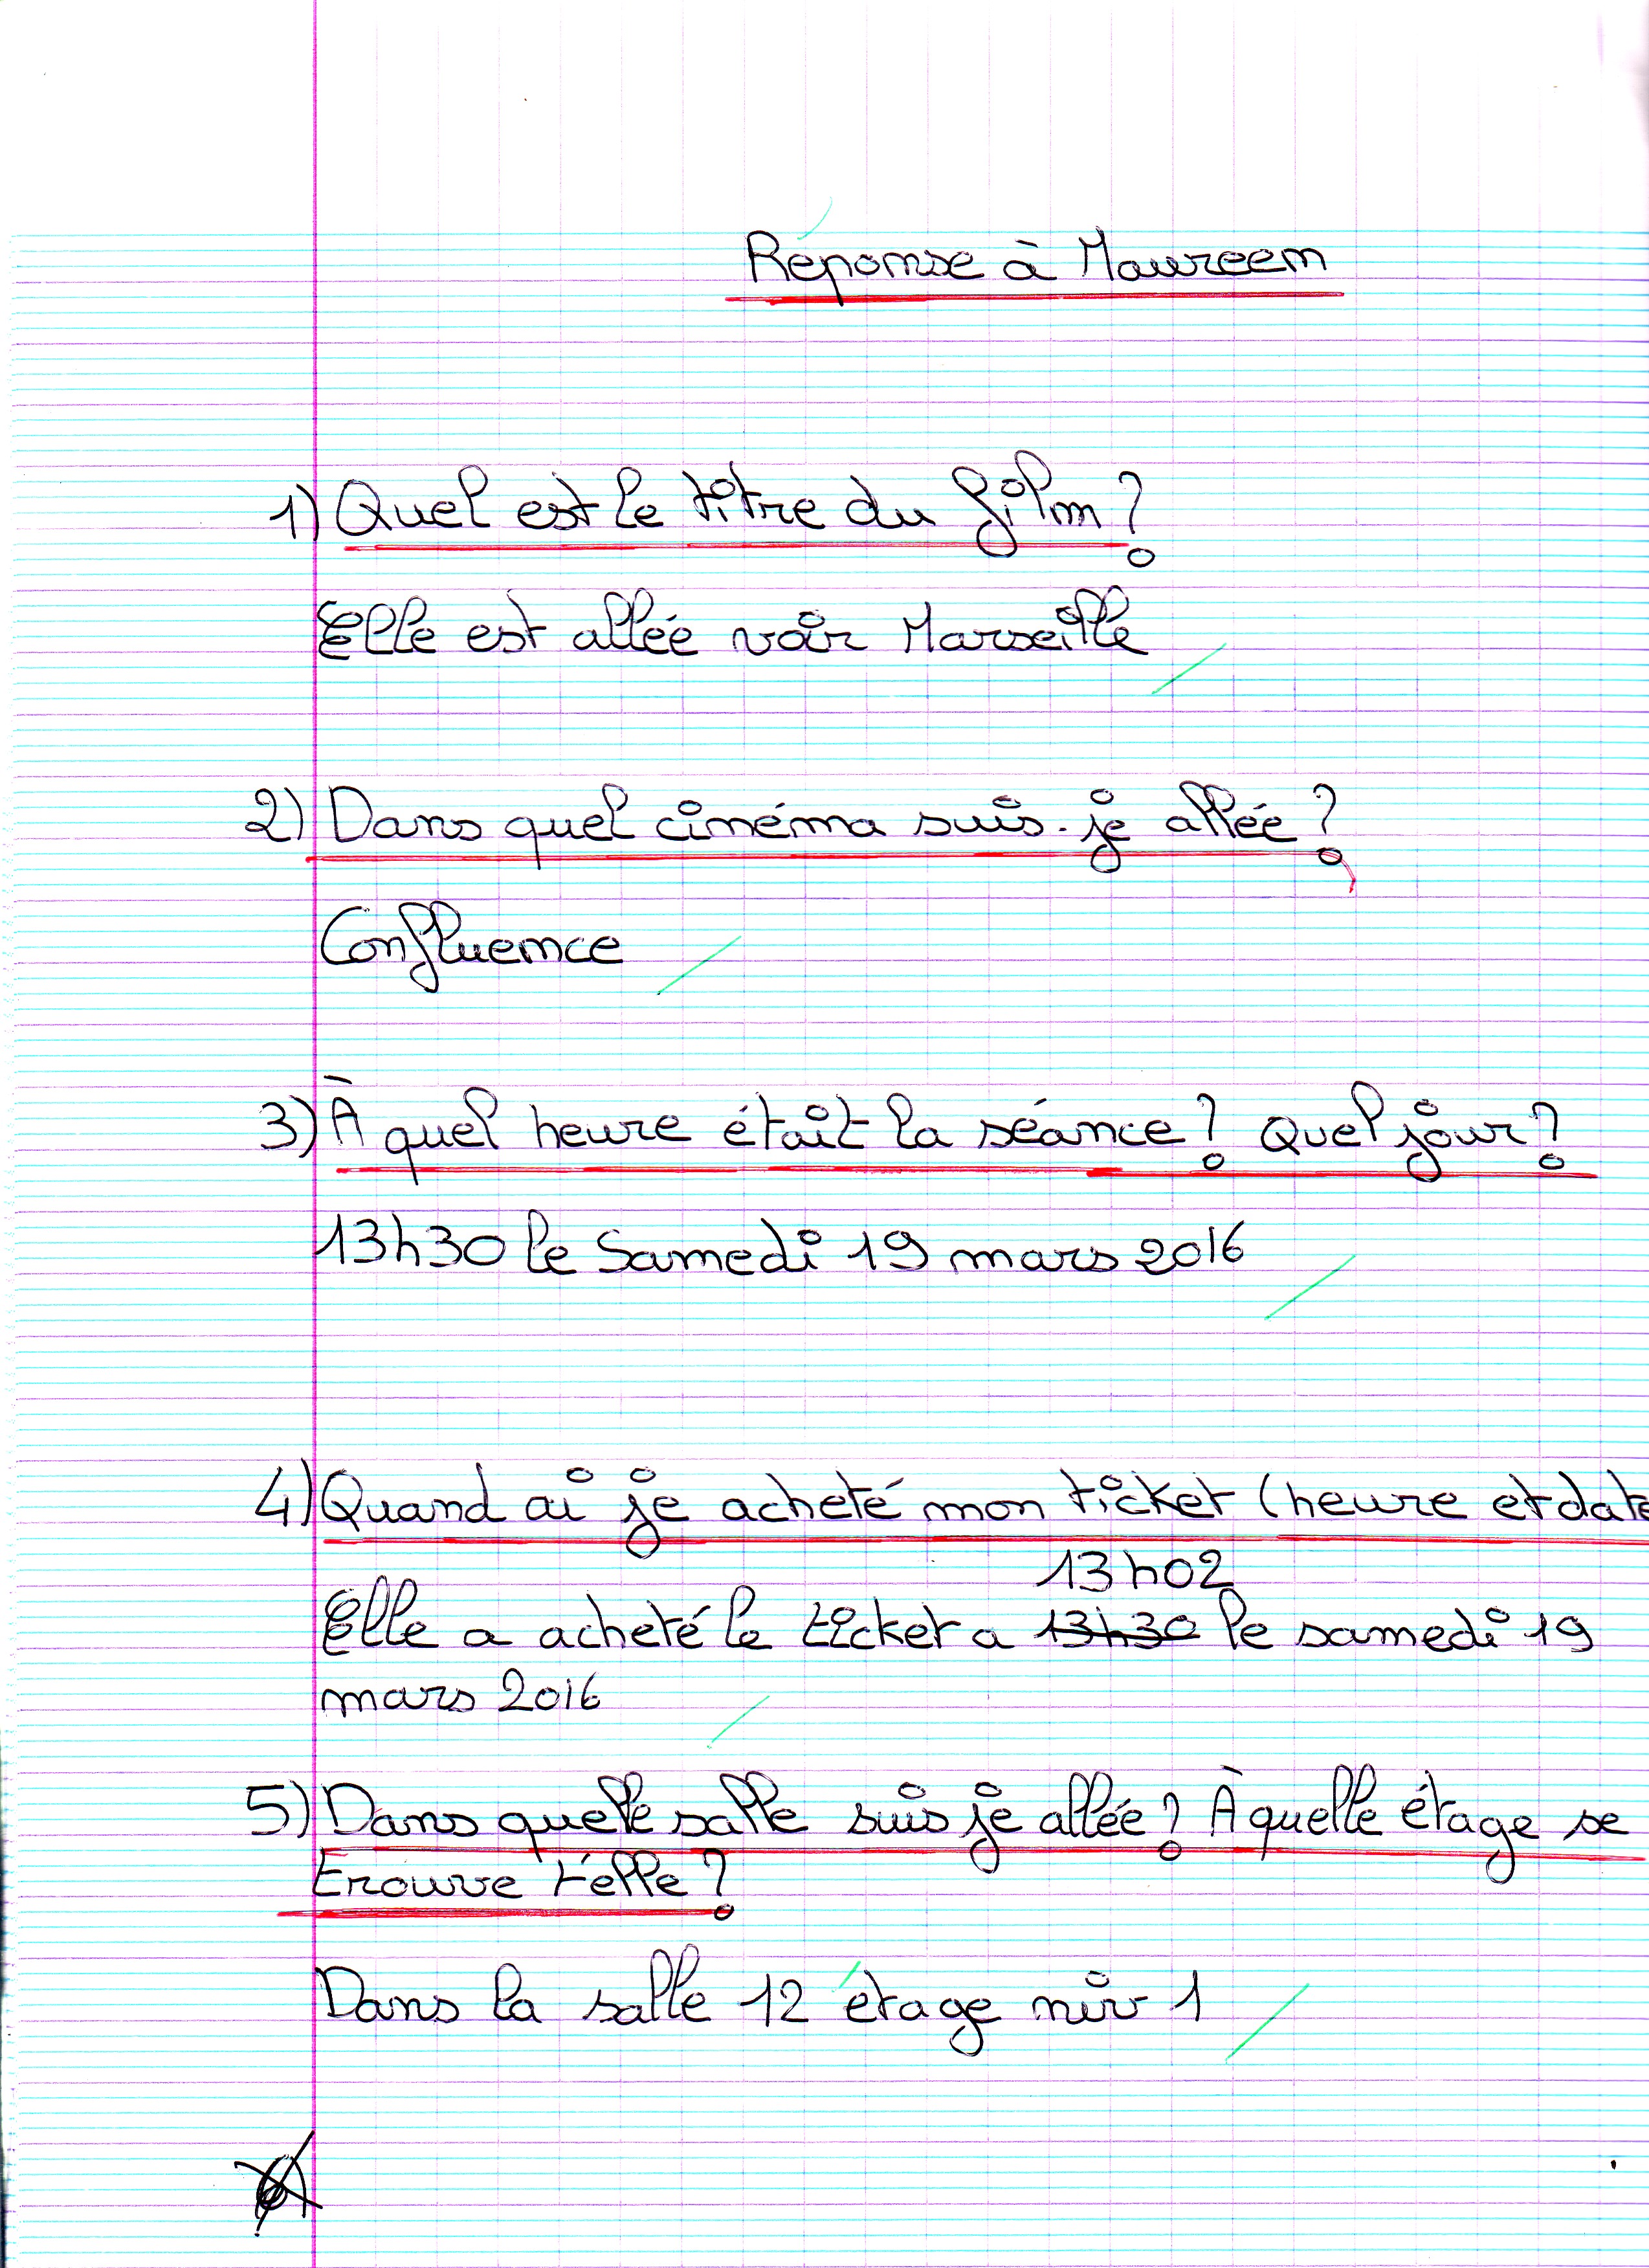 Réponse à Maureen
1) Quel est le titre du film ?
Elle est allée voir Marseille
2) Dans quel cinéma suis-je allée ?
Confluence
3) À quel heure était la séance ? Quel jour ?
13h30 le Samedi 19 mars 2016
4) Quand ai je acheté mon ticket (heure et date
13h02
Elle a acheté le ticket a 13h30 le samedi 19
mars 2016
5) Dans quelle salle suis je allée ? À quelle étage se
trouve t'elle ?
Dans la salle 12 étage niv 1